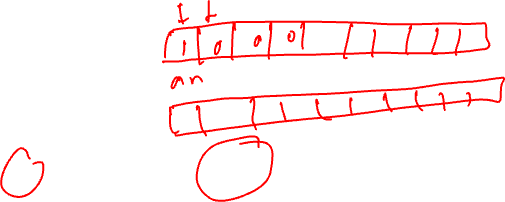 1 0 0 0
an